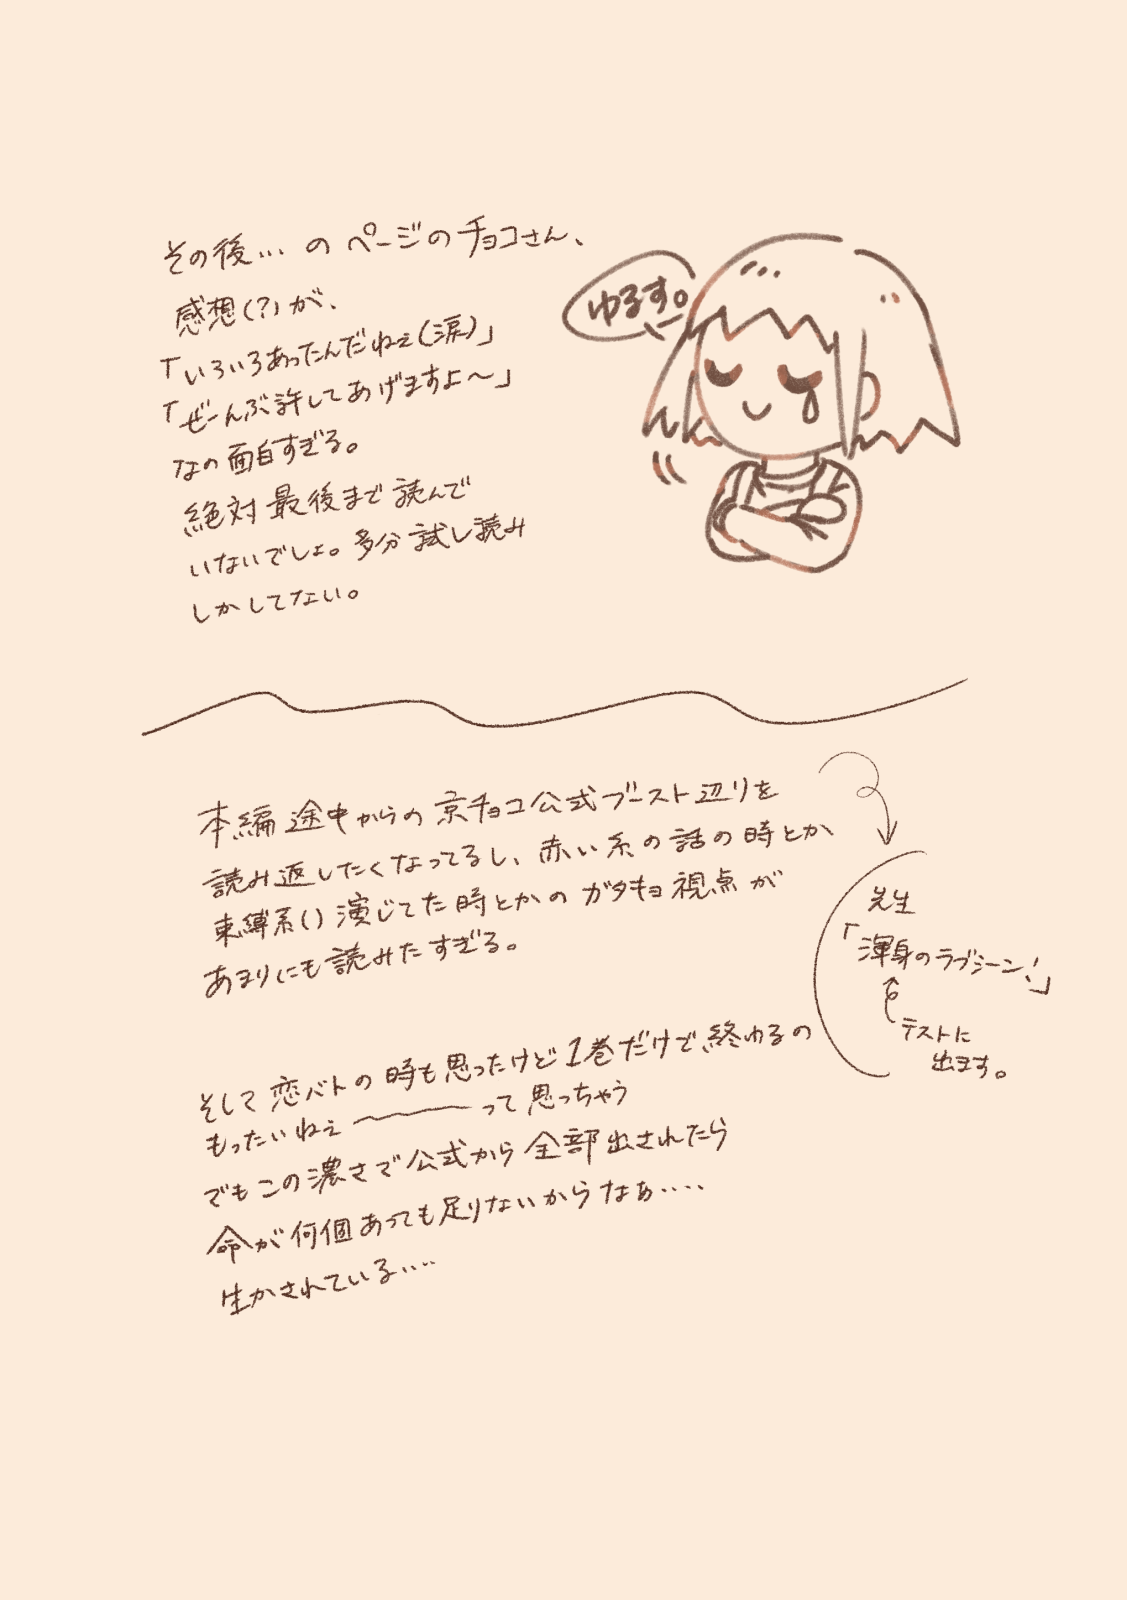 その後…のページのチョコさん、
感想(?)が、
「いろいろあったんだねぇ(涙)」
「ぜーんぶ許してあげますよ〜」
なの面白すぎる。
絶対最後まで読んで
いないでしょ。多分試し読み
しかしてない。
ゆるす。
本編途中からの京チョコ公式ブースト辺りを
読み返したくなってるし、赤い糸の話の時とか
束縛系()演じてた時とかのガタキョ視点が
あまりにも読みたすぎる。
先生
「渾身のラブシーン!」
テストに
出ます。
そして恋バトの時も思ったけど1巻だけで終わるの
もったいねぇ〜〜って思っちゃう
でもこの濃さで公式から全部出されたら
命が何個あっても足りないからなぁ‥‥
生かされている‥‥